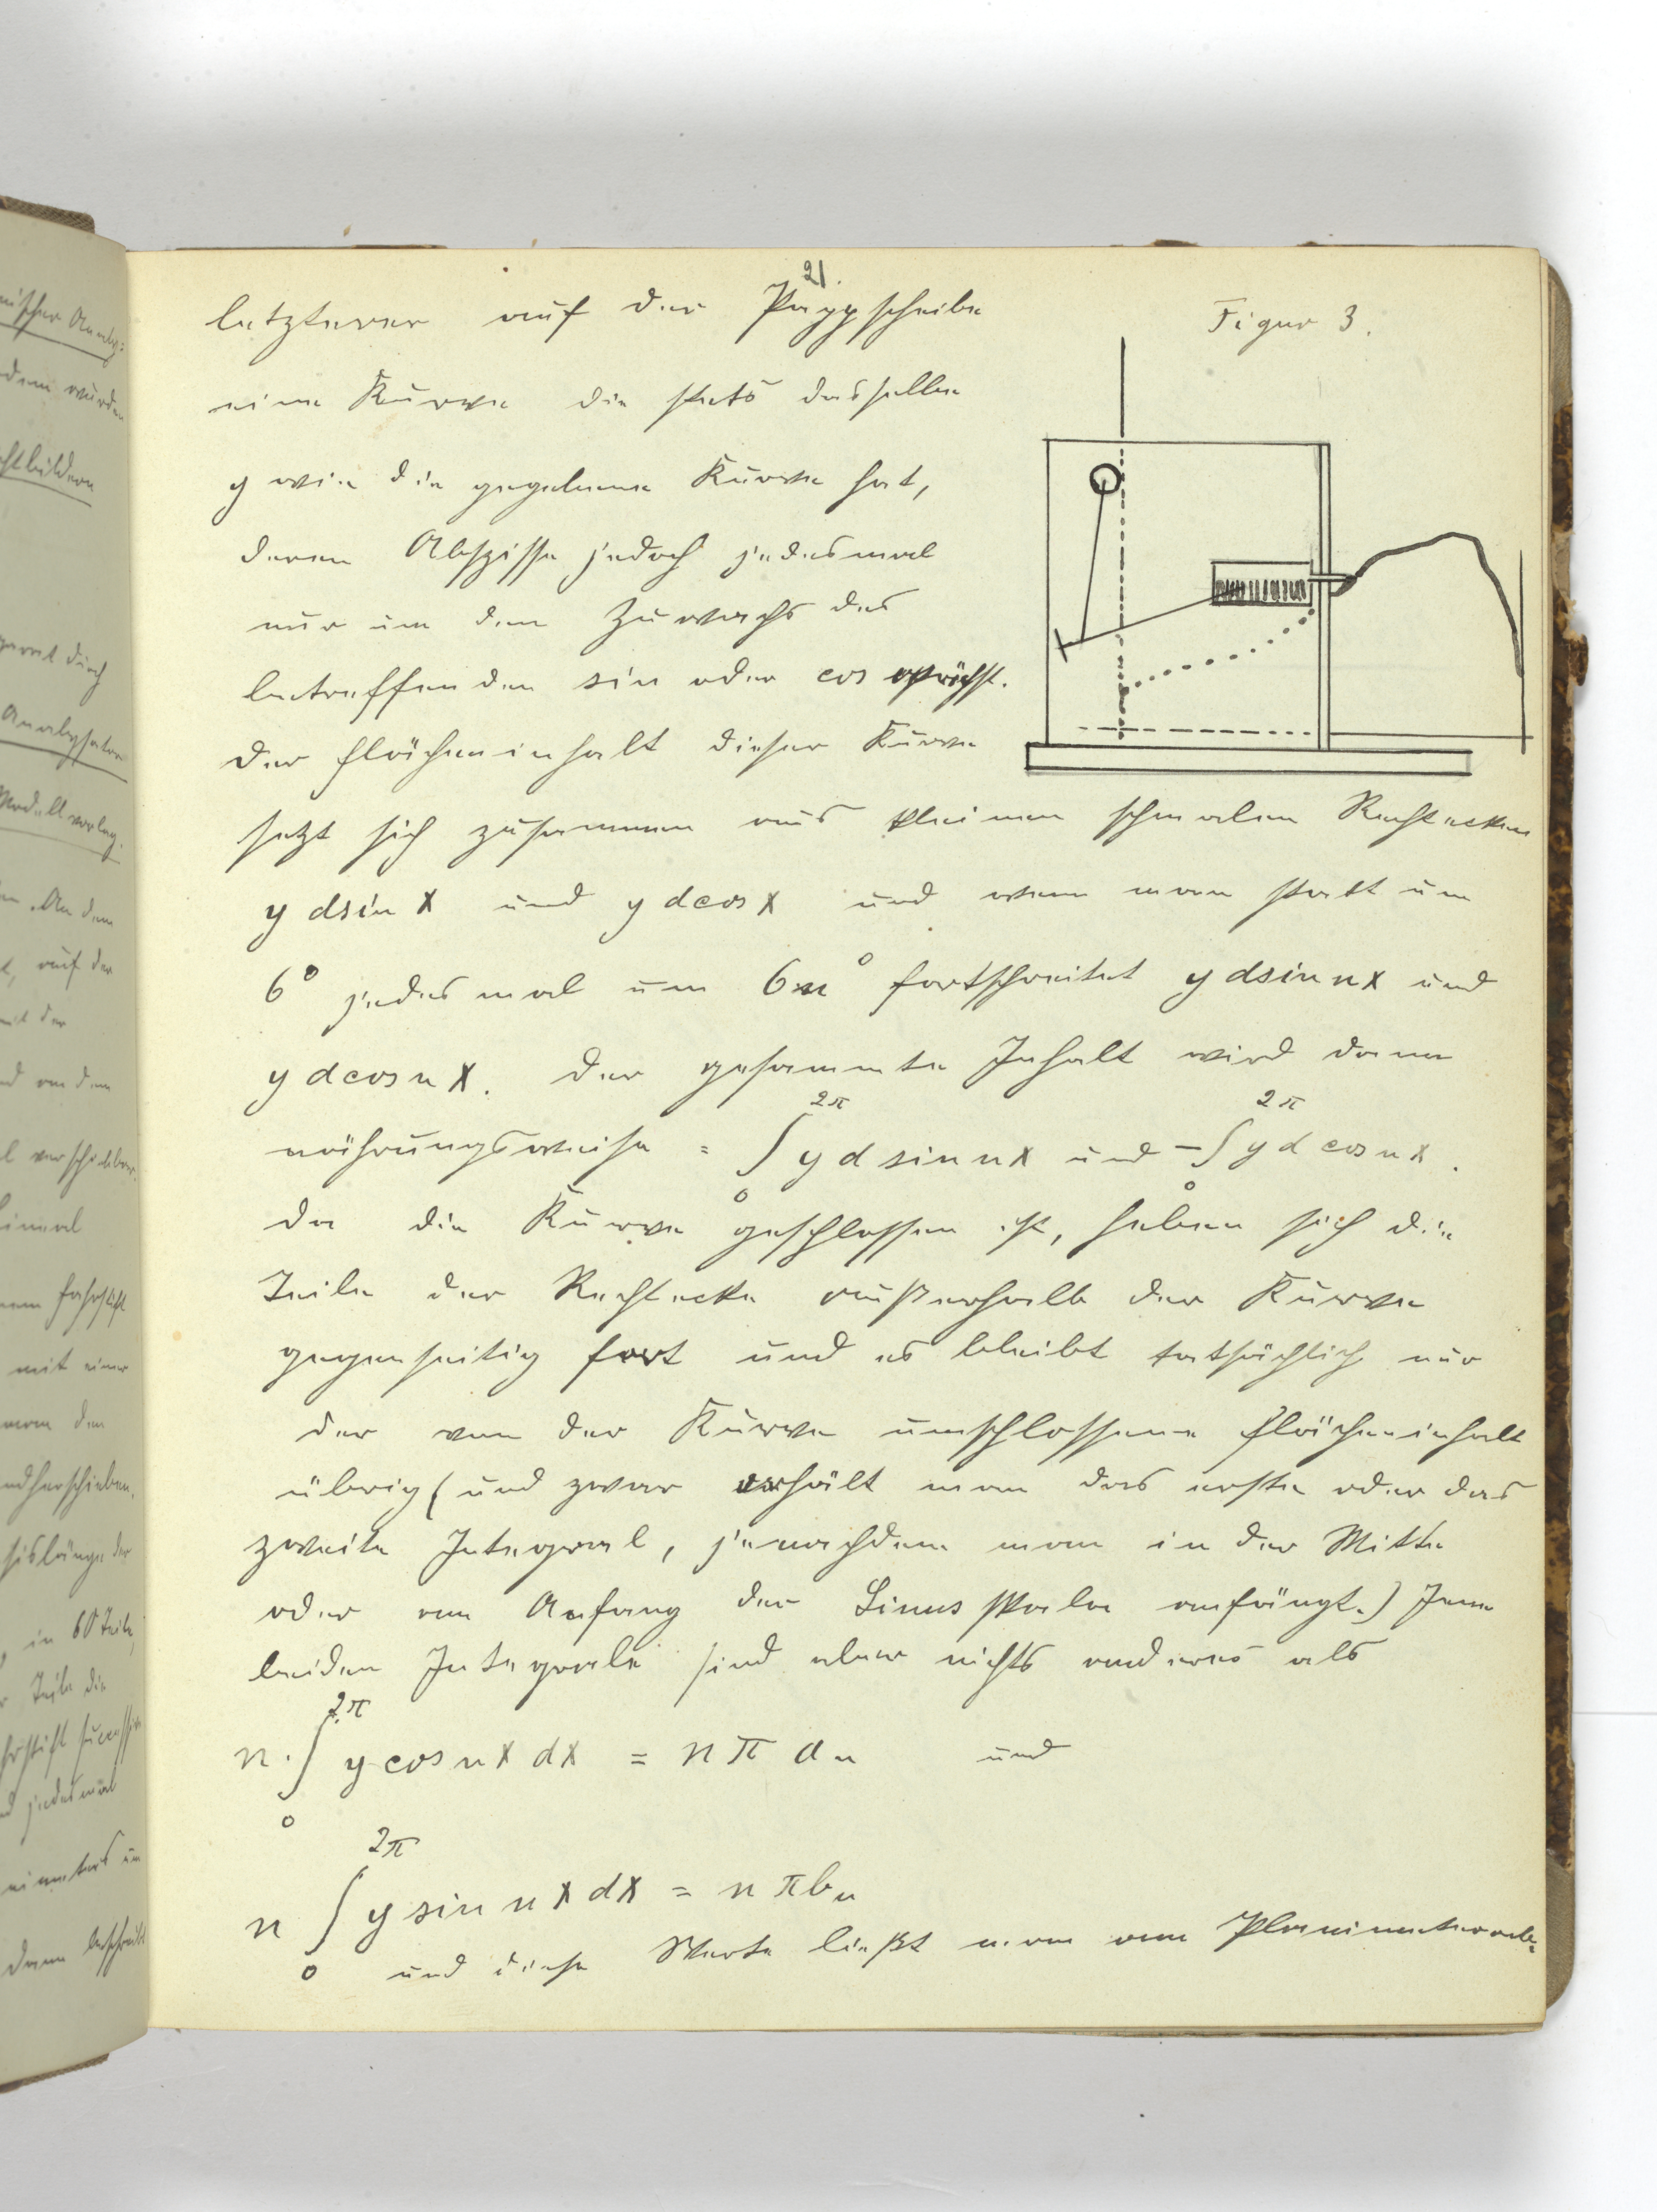 21.
letzterer auf der Pappscheibe
Figur 3.
eine Kurve die stets dasselbe
y wie die gegebene Kurve hat,
deren Abszisse jedoch jedesmal
nur um den Zuwachs des
betreffenden sin oder cos wächst.
Der Flächeninhalt dieser Kurve
setzt sich zusammen aus kleinen schmalen Rechtecken
y dsin x und y dcos x und wenn man statt um
6° jedesmal um 6n° fortschreitet y dsin nx und
y dcos n x. Der gesammte Inhalt wird dann
näherungsweise = ∫₀^2π y d sin nx und −∫₀^2π y d cos nx.
Da die Kurve geschlossen ist, heben sich die
Teile der Rechtecke außerhalb der Kurve
gegenseitig fort und es bleibt tatsächlich nur
der von der Kurve umschlossene Flächeninhalt
übrig (und zwar erhält man das erste oder das
zweite Integral, jenachdem man in der Mitte
oder am Anfang der Sinusskala anfängt.) Jene
beiden Integrale sind aber nichts anderes als
n·∫₀^2π y cos nx dx = n π aₙ und
n ∫₀^2π y sin n x dx = n π bₙ
und diese Werte ließt man am Planimeter ab.
mit einer
man den
in 60 Teile,
Teile die